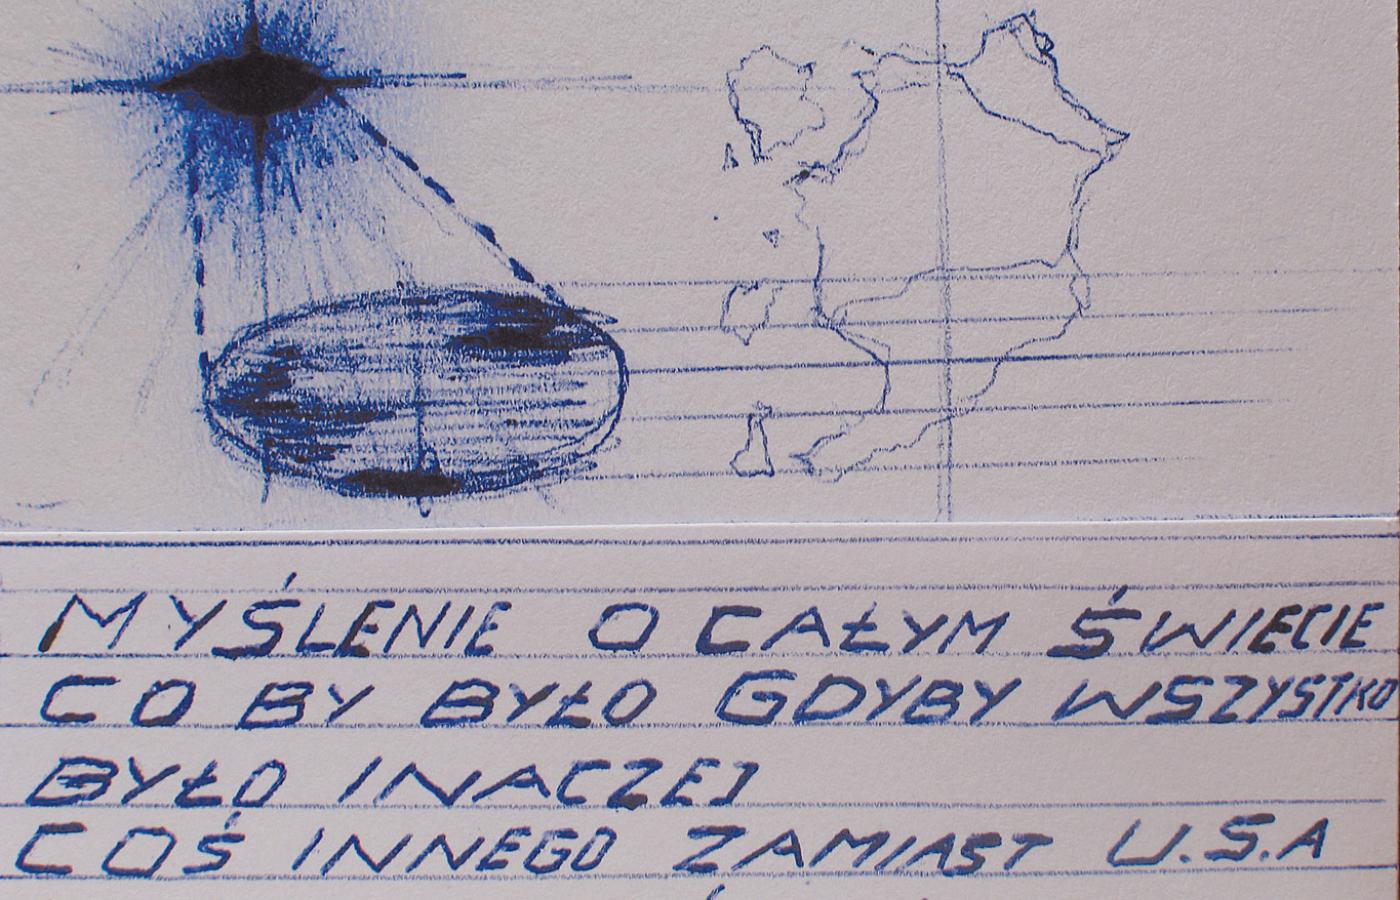 MYŚLENIE O CAŁYM ŚWIECIE
CO BY BYŁO GDYBY WSZYSTKO
BYŁO INACZEJ
COŚ INNEGO ZAMIAST U.S.A